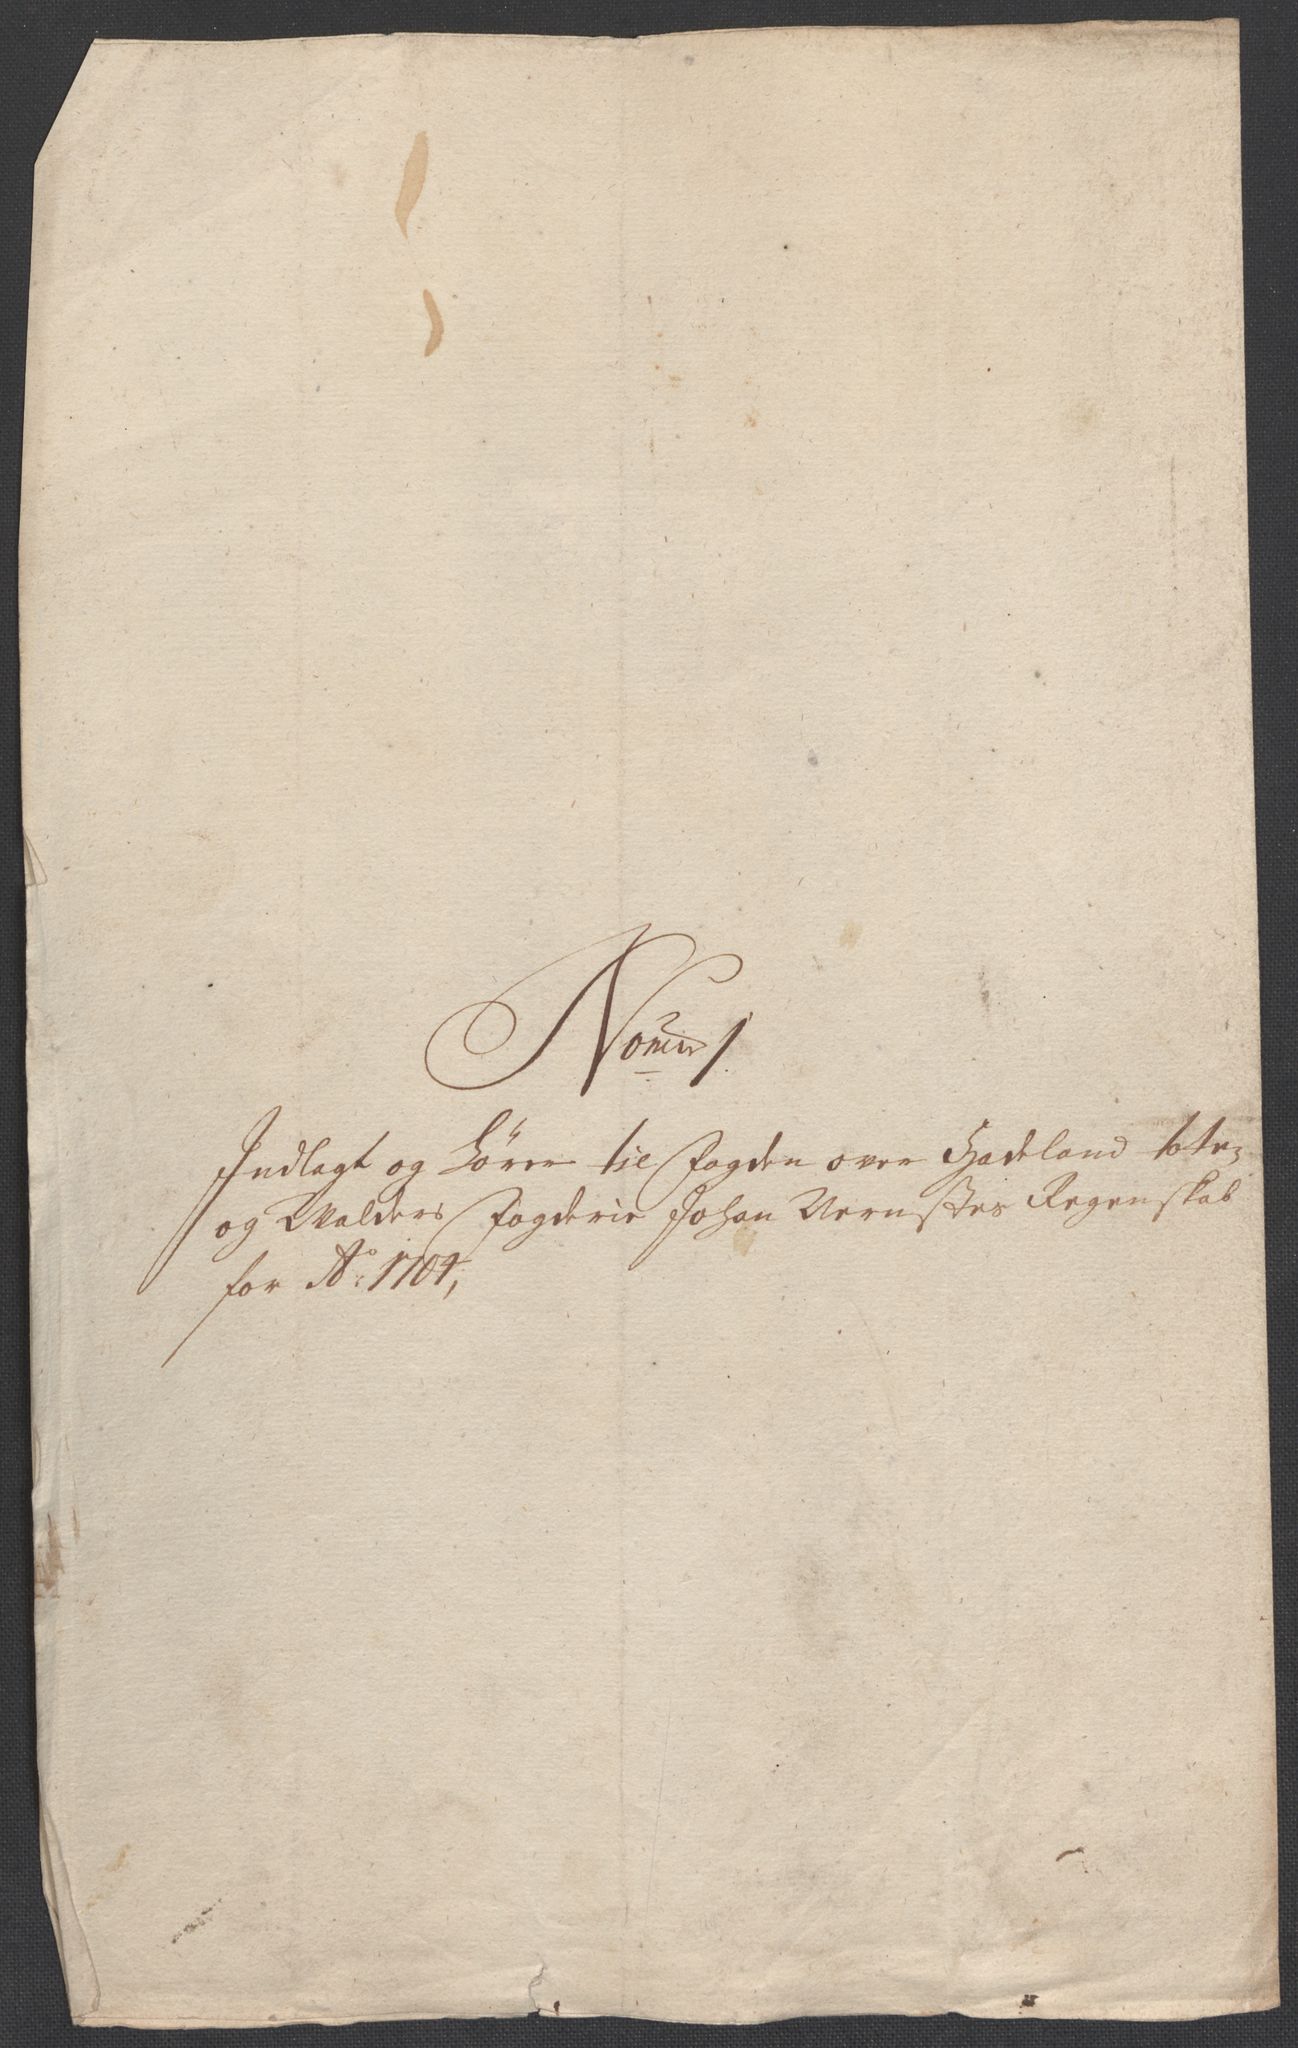 Nomer 1
Indlagt og hörer til fogden over Hadeland toten
og Walders fogderie Johan Vernstes Regenskab
for Ao: 1704,